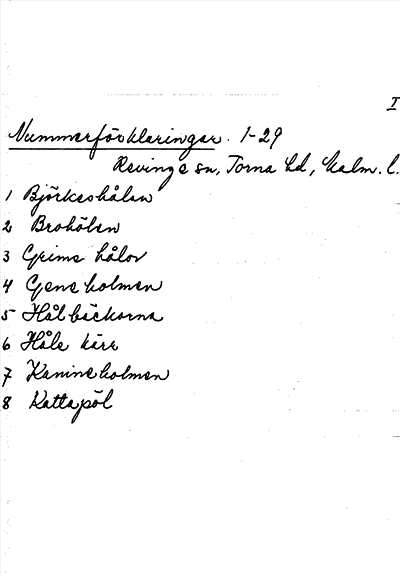 I
Nummerförklaringar. 1-29
Revinge sn, Torna hd, Malm. l.
1 Björkeshålan
2 Brohölen
3 Grims hålor
4 Gens holmen
5 Hålbäckarna
6 Håls kärr
7 Kanineholmen
8 Kattapöl